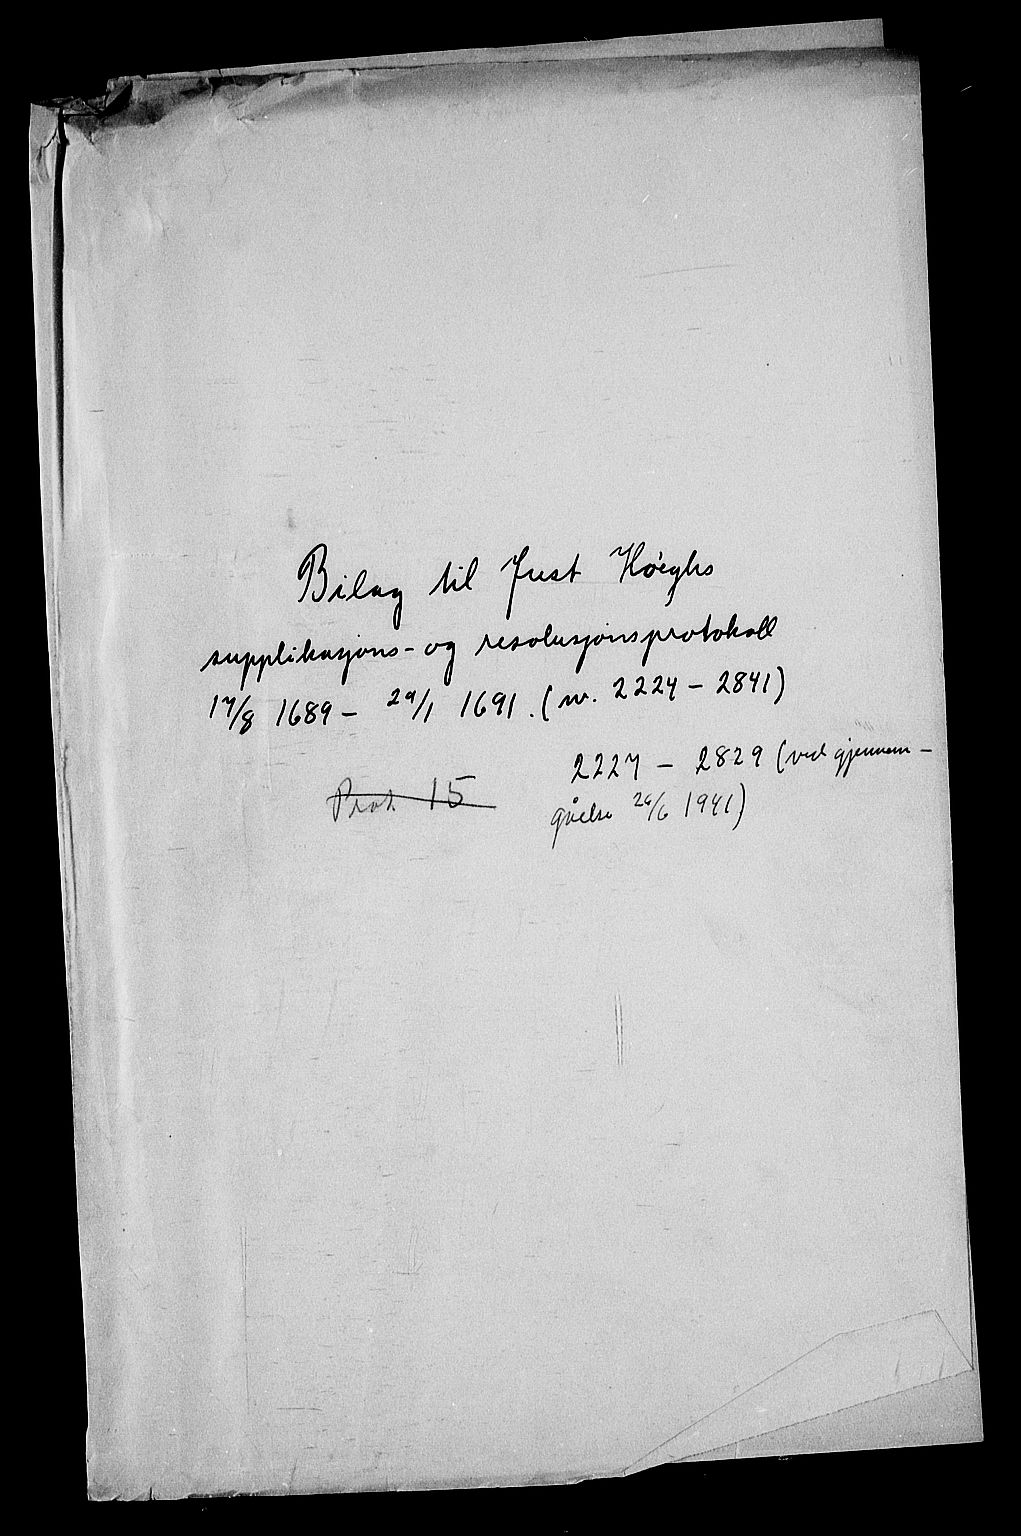 Bilag til Just Høeghs
supplikasjons- og resolusjonsprotokoll
17/8 1689 - 29/1 1691. (nr. 2224 - 2841)
2227 - 2829 (ved gjennem-
Prot 15
gåelse 26/6 1941)